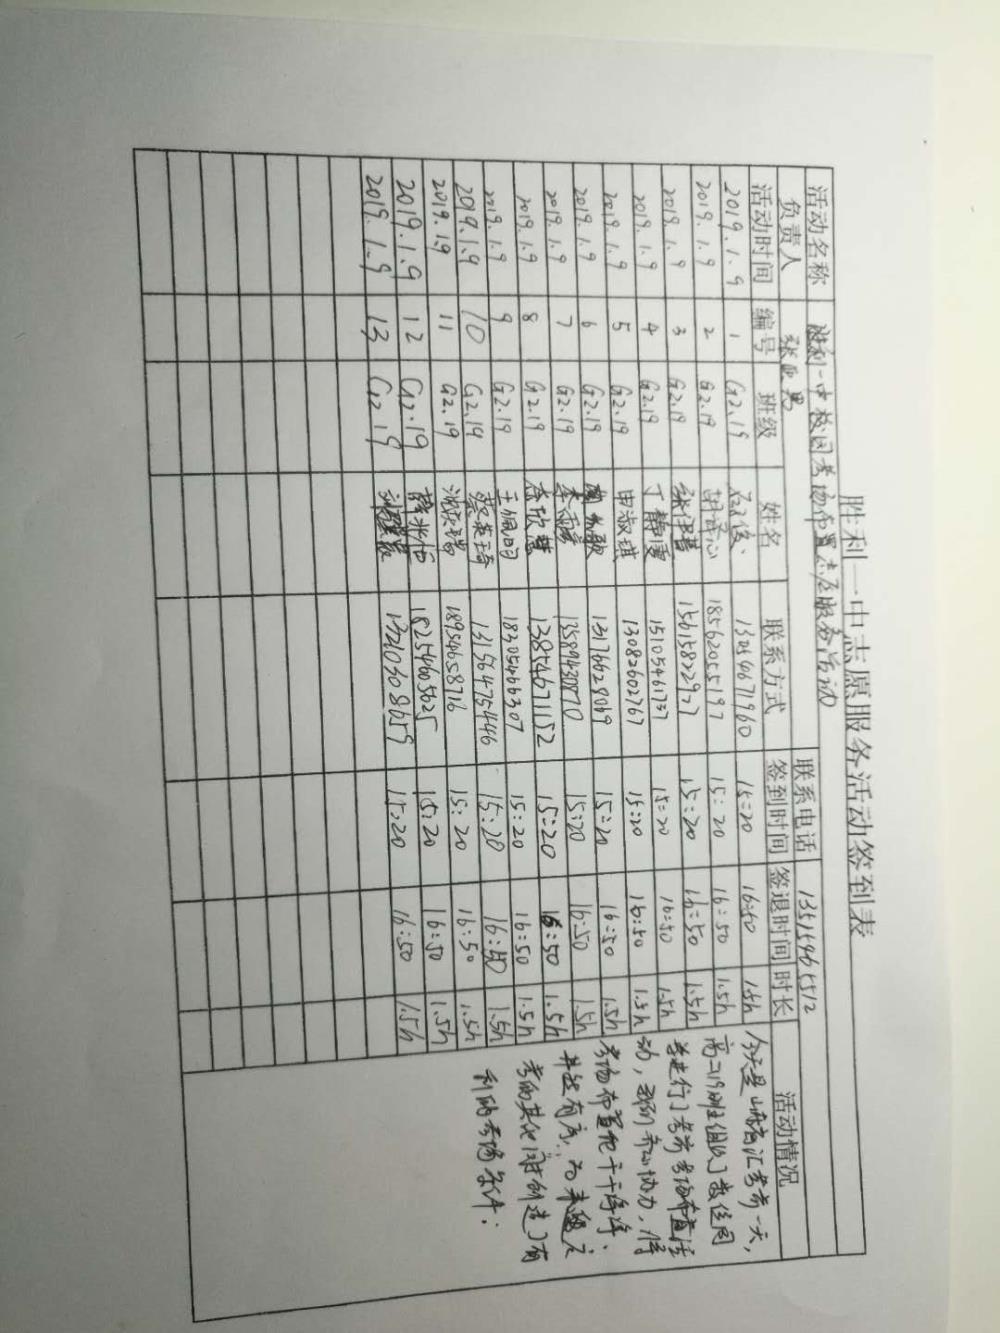 胜利一中志愿服务活动签到表
活动名称 胜利一中校园考场布置志愿服务活动
负责人 张亚男 联系电话 13515465512
活动时间 编号 班级 姓名 联系方式 签到时间 签退时间 时长 活动情况
2019.1.9 1 G2.19 13054671960 15:20 16:50 1.5h
2019.1.9 2 G2.19 18562055197 15:20 16:50 1.5h
2019.1.9 3 G2.19 15615822977 15:20 16:50 1.5h
2019.1.9 4 G2.19 丁静雯 15105461737 15:20 16:50 1.5h
2019.1.9 5 G2.19 申淑琪 13082602767 15:20 16:50 1.5h
2019.1.9 6 G2.19 15:20 16:50 1.5h
2019.1.9 7 G2.19 15:20 16:50 1.5h
2019.1.9 8 G2.19 李欣慧 13854671152 15:20 16:50 1.5h
2019.1.9 9 G2.19 王佩同 18305466307 15:20 16:50 1.5h
2019.1.9 10 G2.19 蔡英琦 13156475446 15:20 16:50 1.5h
2019.1.9 11 G2.19 18954658716 15:20 16:50 1.5h
2019.1.9 12 G2.19 15254605625 15:20 16:50 1.5h
2019.1.9 13 G2.19 15:20 16:50 1.5h
今天是山东省汇考前一天,
高二19班组织了数位同
学进行了考前考场布置活
动,我们齐心协力,将
考场布置地干干净净、
井然有序,为
考的其他同学创造了有
利的考场条件.